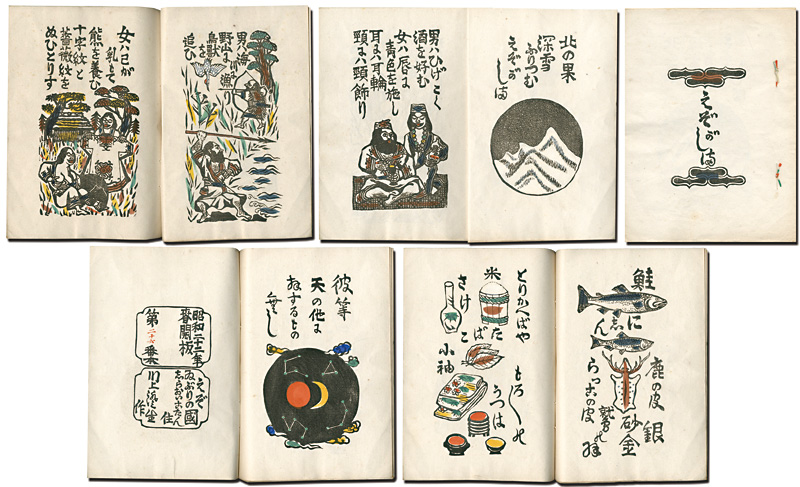 えぞがしま
北の果
深雪
ふりつむ
えぞが
しま
男ハひげこく
酒を好む
女ハ唇に
青色を施し
耳にハ耳輪
頸にハ頸飾り
男ハ海川に漁り
野山に
鳥獣を
追ひ
女ハ己が
乳もて
熊を養ひ
十字紋と
薔薇紋を
ぬひとりす
鮭
にしん
鹿の皮
銀
砂金
鷲の羽
らっこの皮
とりかへばや
米
さけ
たばこ
小袖
もろもろの
うつは
彼等
天の他に
するもの
無し
昭和二十二年
開板
第二十七番
えぞ
ゐぶりの國
しらおいこたん
住
川上澄生
作